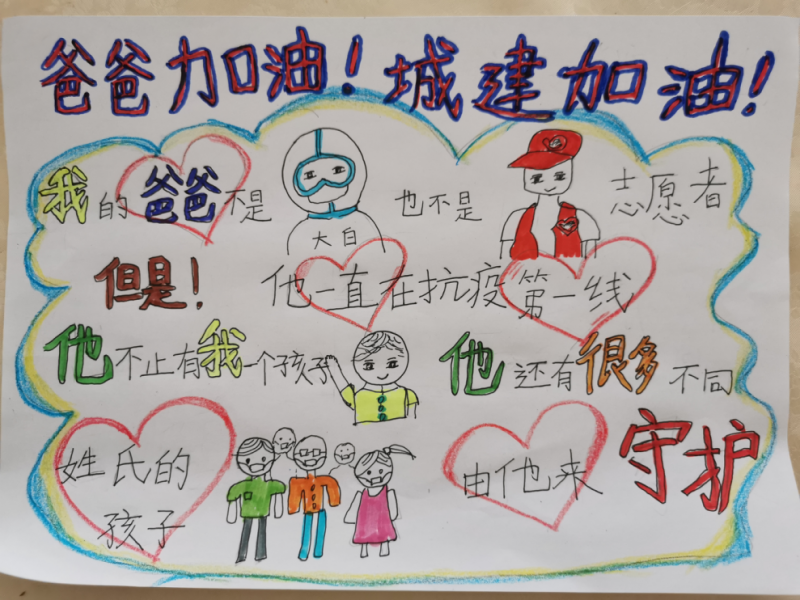 爸爸加油！城建加油！
我的爸爸不是
大白
也不是
志愿者
但是！他一直在抗疫第一线
他不止有我一个孩子
他还有很多不同
姓氏的
孩子
由他来守护